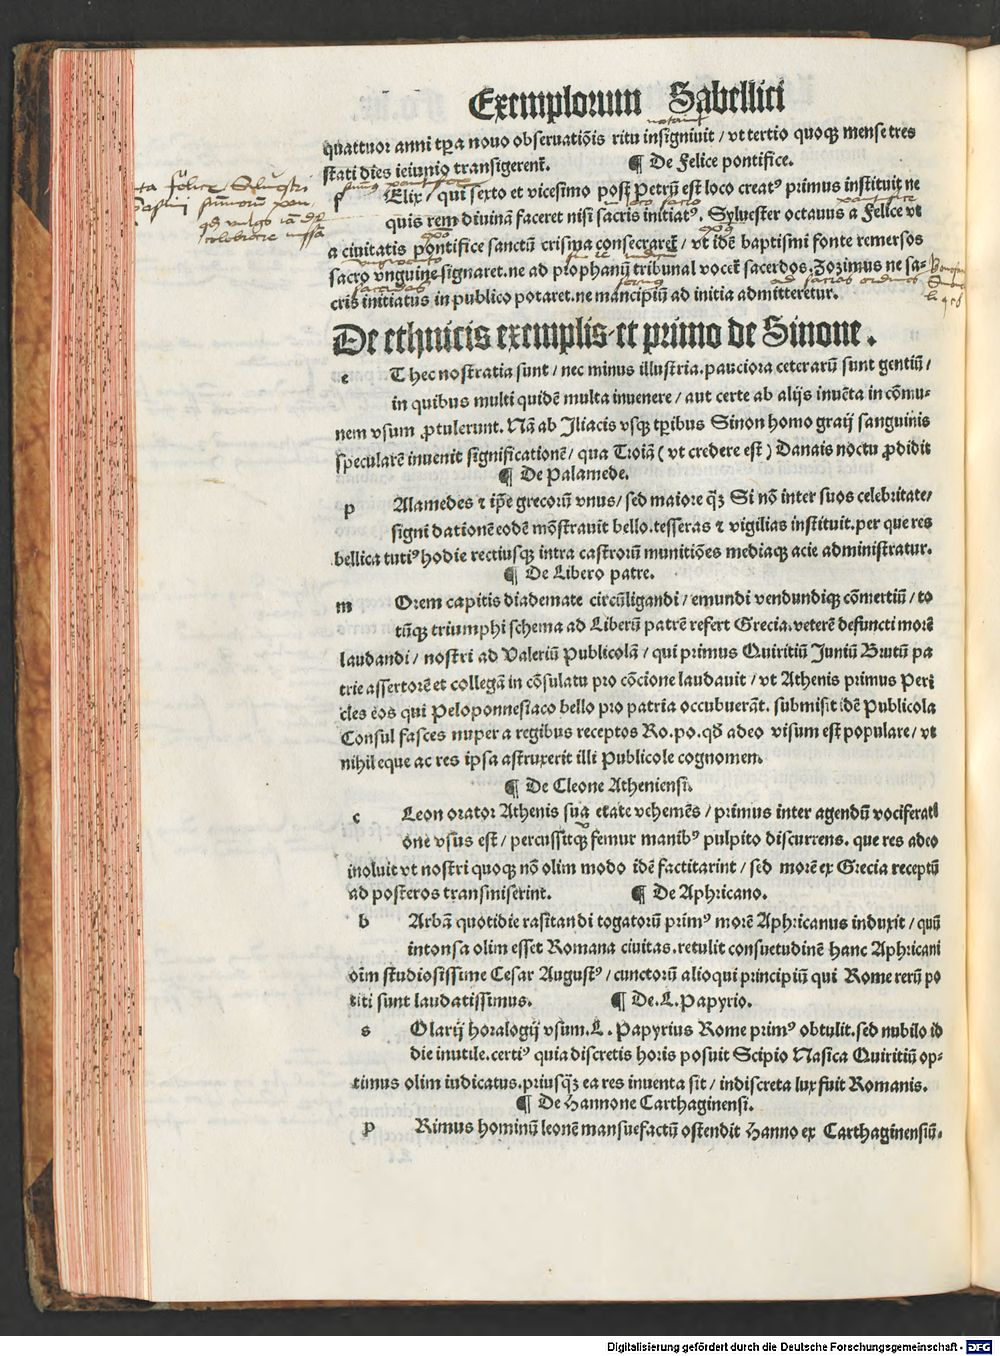 Exemplorum Sabellici
quattuor anni tpa novo obseruatiõis ritu insigniuit / vt tertio quoqȝ mense tres
stati dies ieiunio transigerent̃.  ¶ De Felice pontifice.
f Elix / qui sexto et vicesimo post Petrũ est loco creatꝰ primus instituit ne
quis rem diuinã faceret nisi sacris initiatꝰ. Syluester octauus a Felice vt
a ciuitatis pontifice sanctũ crisma consecraret̃ / vt idẽ baptismi fonte remersos
sacro vnguine signaret. ne ad prophanũ tribunal vocet̃ sacerdos. Zozimus ne sa-
cris initiatus in publico potaret. ne mancipiũ ad initia admitteretur.
De ethnicis exemplis et primo de Sinone.
e T hec nostratia sunt / nec minus illustria. pauciora ceterarũ sunt gentiũ /
in quibus multi quidẽ multa inuenere / aut certe ab alijs inuẽta in cõmu-
nem vsum ꝓtulerunt. Nã ab Iliacis vsqȝ tꝑibus Sinon homo graij sanguinis
specularẽ inuenit significationẽ / qua Troiã ( vt credere est ) Danais noctu ꝓdidit
¶ De Palamede.
p Alamedes ⁊ ip̃e grecorũ vnus / sed maiore qȝ̃ Si nõ inter suos celebritate /
signi dationẽ eodẽ mõstrauit bello. tesseras ⁊ vigilias instituit. per que res
bellica tutiꝰ hodie rectiusqȝ intra castrorũ munitiões mediaqȝ acie administratur.
¶ De Libero patre.
m Orem capitis diademate circũligandi / emundi vendundiqȝ cõmertiũ / to
tũqȝ triumphi schema ad Liberũ patrẽ refert Grecia. veterẽ defuncti morẽ
laudandi / nostri ad Valeriũ Publicolã / qui primus Quiritiũ Juniũ Brutũ pa
trie assertorẽ et collegã in cõsulatu pro cõcione laudauit / vt Athenis primus Peri
cles eos qui Peloponnesiaco bello pro patria occubuerãt. submisit idẽ Publicola
Consul fasces nuper a regibus receptos Ro. po. qđ adeo visum est populare / vt
nihil eque ac res ipsa astruxerit illi Publicole cognomen.
¶ De Cleone Atheniensi.
c Leon orator Athenis sua etate vehemẽs / primus inter agendũ vociferati
one vsus est / percussitqȝ femur manibꝰ pulpito discurrens. que res adeo
inoluit vt nostri quoqȝ nõ olim modo idẽ factitarint / sed morẽ ex Grecia receptũ
ad posteros transmiserint.  ¶ De Aphricano.
b Arbã quotidie rasitandi togatorũ primꝰ morẽ Aphricanus induxit / quũ
intonsa olim esset Romana ciuitas. retulit consuetudinẽ hanc Aphricani
oĩm studiosissime Cesar Augustꝰ / cunctorũ alioqui principiũ qui Rome rerũ po
titi sunt laudatissimus.  ¶ De. L. Papyrio.
s Olarij horalogij vsum. L. Papyrius Rome primꝰ obtulit. sed nubilo id
die inutile. certiꝰ quia discretis horis posuit Scipio Nasica Quiritiũ op-
timus olim iudicatus. priusqȝ̃ ea res inuenta sit / indiscreta lux fuit Romanis.
¶ De Hannone Carthaginensi.
p Rimus hominũ leonẽ mansuefactũ ostendit Hanno ex Carthaginensiũ.
Digitalisierung gefördert durch die Deutsche Forschungsgemeinschaft - DFG